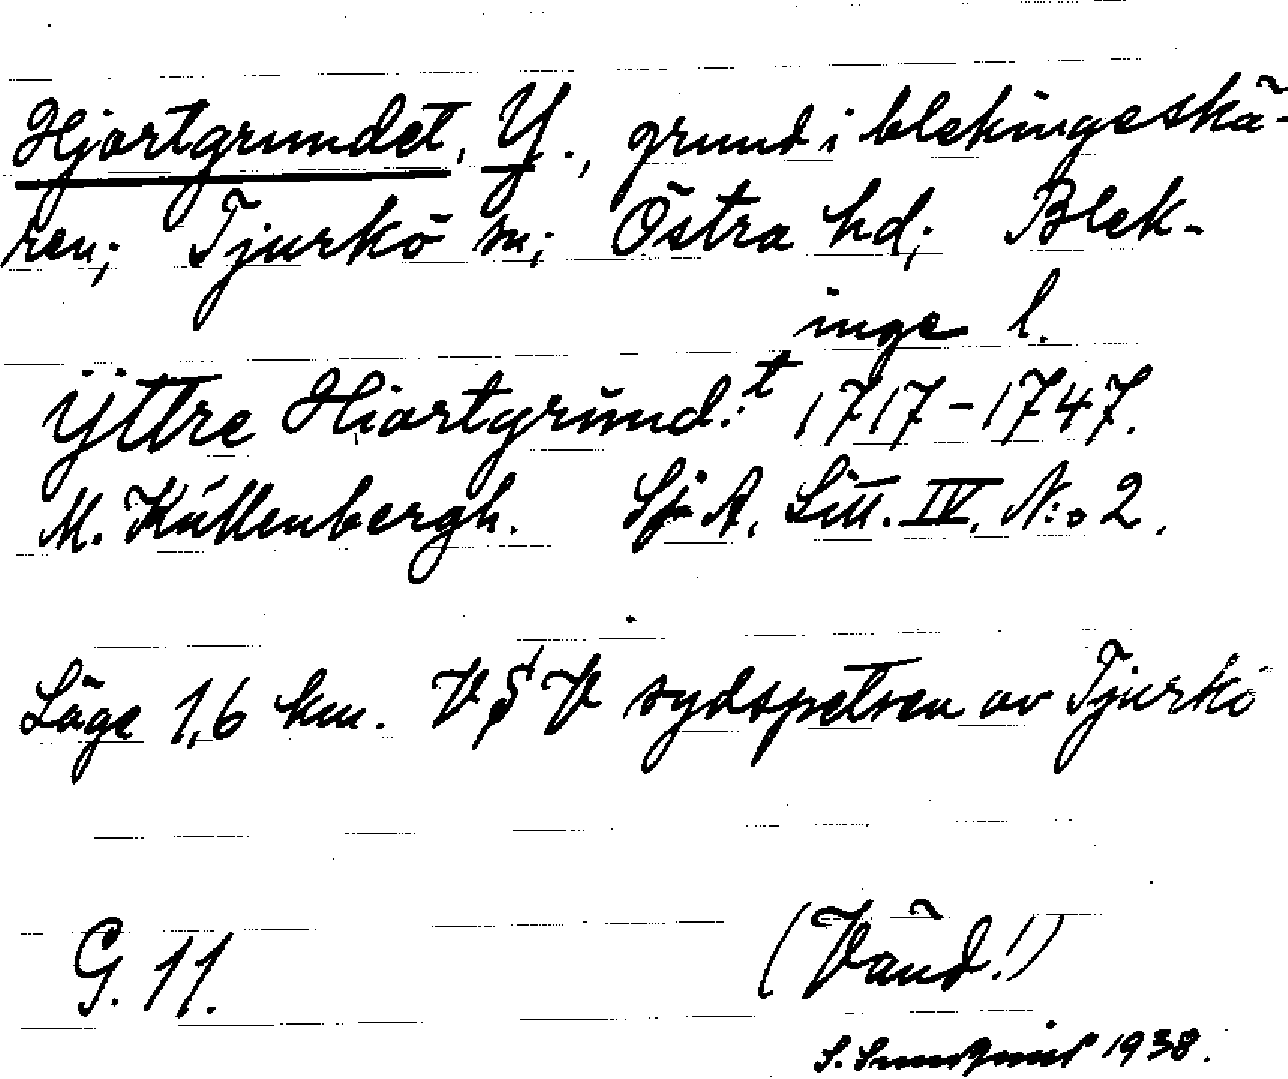 Hjortgrundet, Y., grund i blekingeskä-
ren; Tjurkö sn; Östra hd; Blek-
inge l.
Ÿttre Hiortgrund:t 1717-1747.
M. Källenbergh. SjöA, Litt. IV, N:o 2.
Läge 1,6 km. V§V sydspetsen av Tjurkö
G. 11. (Vänd!)
S. Sundquist 1938.